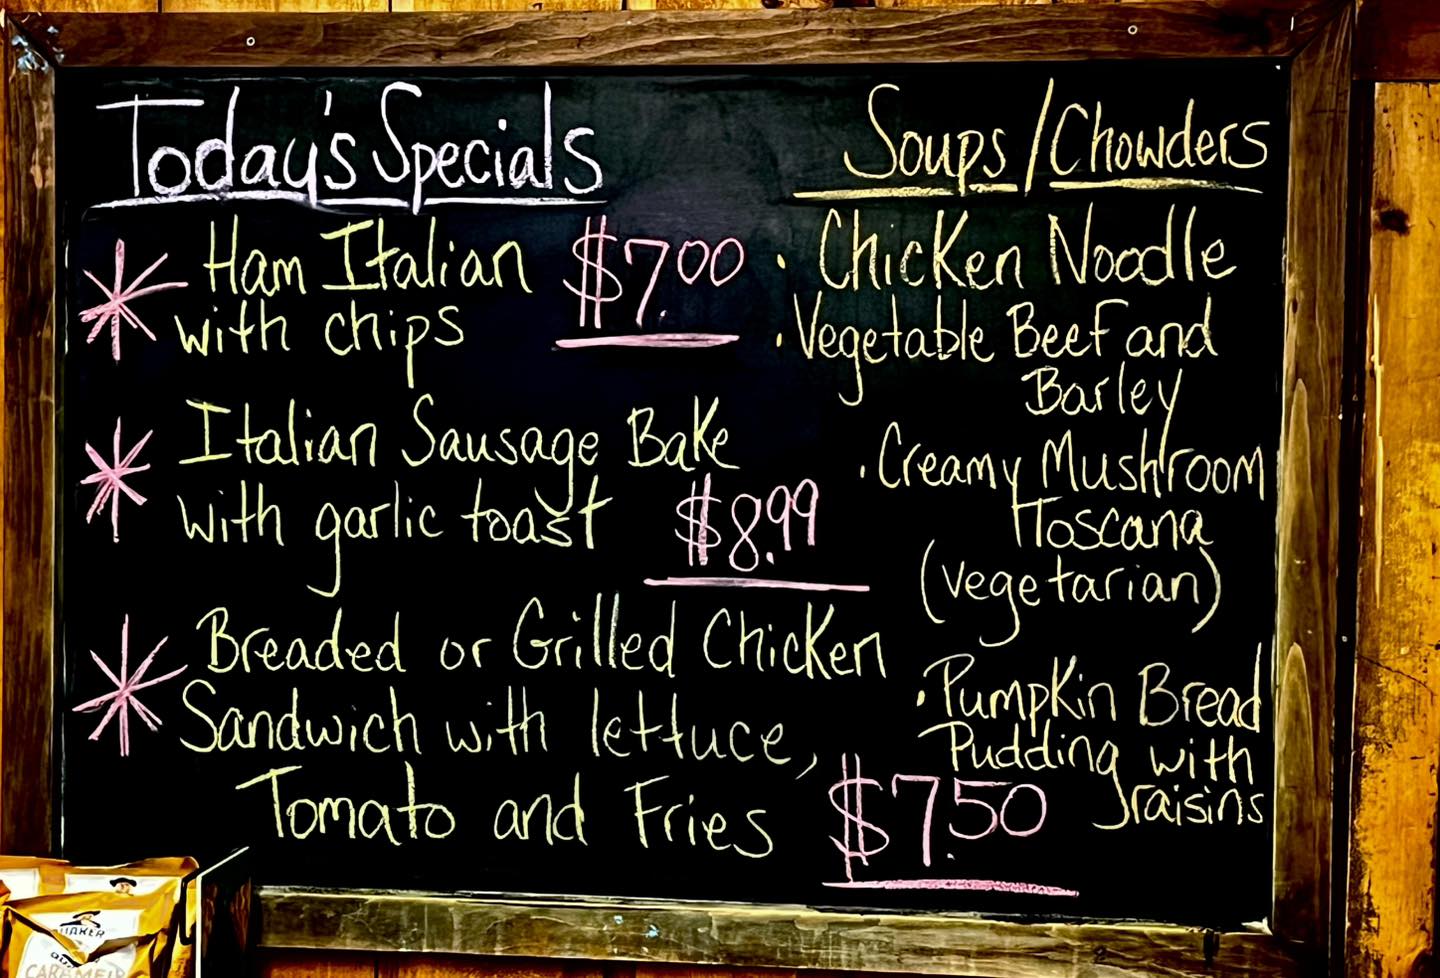 Today's Specials
Ham Italian $7.00
with chips
Italian Sausage Bake
with garlic toast $8.99
Breaded or Grilled Chicken
Sandwich with lettuce,
Tomato and Fries $7.50
Soups/Chowders
· Chicken Noodle
· Vegetable Beef and
Barley
· Creamy Mushroom
Toscana
(vegetarian)
· Pumpkin Bread
Pudding with
raisins
QUAKER
CARAMEL